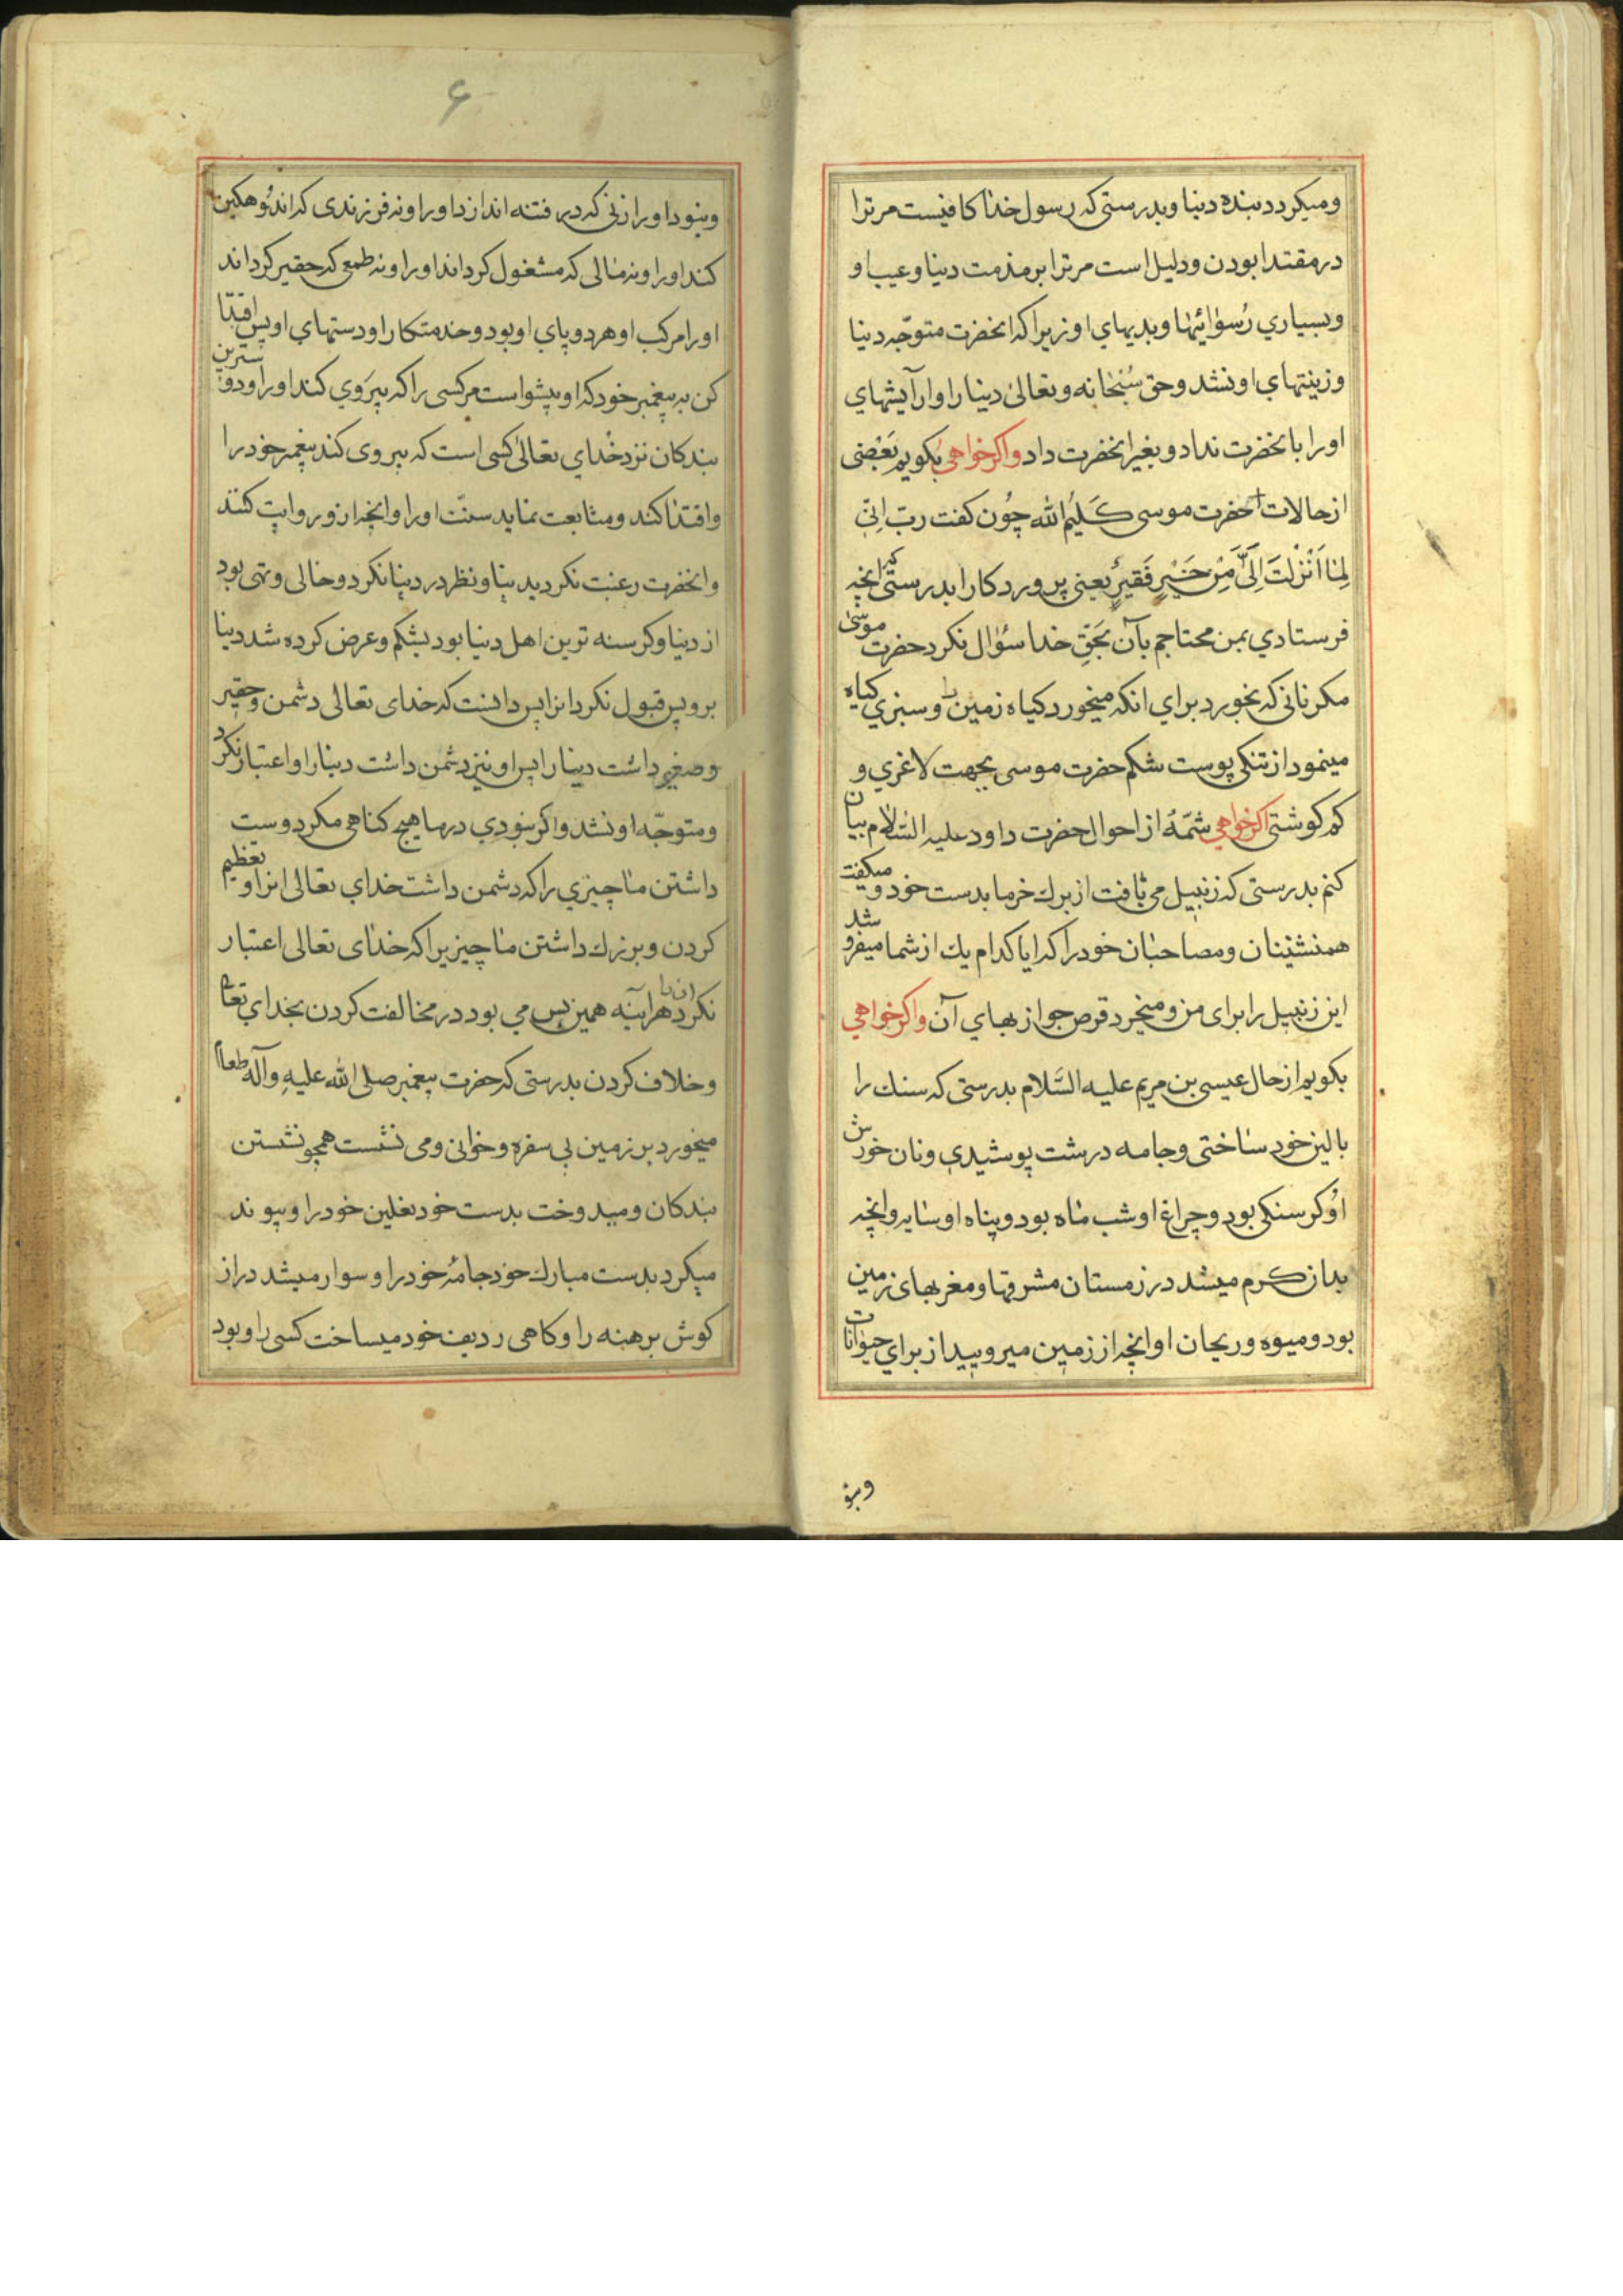 ومیکردد بنده دنیا وبدرستی که رسول خدا کافیست مر ترا
در مقتدا بودن ودلیل است مر ترا بر مذمت دنیا وعیب او
وبسیاري رُسوائیها وبدیهاي او زیرا که انحضرت متوجّه دنیا
وزینتهاي او نشد وحق سُبحانه وتعالی دنیا را وارآیشهاي
او را بانحضرت نداد وبغیر انحضرت داد واکر خواهی بکویم بَعْضی
از حالات حضرت موسی کَلیمُ الله چُون کفت ربّ اِنّی
لِمٰا اَنْزَلْتَ اِلَیَّ مِنْ خَیْرٍ فَقیرٌ یعنی پروردکارا بدرستی که انچه
فرستادي بمن محتاجم بآن بَحَقِّ خدا سؤال نکرد حضرت موسیٰ
مکر نانی که بخورد براي انکه میخورد کیاه زمین را وسبزي کیاه
مینمود از تنکی پوست شکم حضرت موسی بجهت لاغري و
کم کوشتی اکر خواهی شمّهٔ از احوال حضرت داود علیه السّلام بیان
کنم بدرستی که زنبیل می بافت از برك خرما بدست خود ومیکفت
همنشینان ومصاحبان خود را که ایا کدام یك از شما میفروشد
این زنبیل را برای من ومیخرد قرص جو از بهاي آن واکر خواهی
بکویم از حال عیسی بن مریم علیه السَّلام بدرستی که سنك را
بالین خود ساختی وجامه درشت پوشیدي ونان خورش
اوُ کرسنکی بود وچراغ او شب ماه بود وپناه او سایه وانچه
بدان کرم میشد در زمستان مشرقها ومغربهاي زمین
بود ومیوه وریحان او انچه از زمین میروییید از براي حیوانات
ونبو
۶
ونبود او را زنی که در فتنه اندازد او را ونه فرزندی که اندوُهکین
کند او را ونه مالی که مشغول کرداند او را ونه طمعی که حقیر کرداند
او را مرکب او هر دو پاي او بود وخدمتکار او دستهاي او پس اقتدا
کن به پیغمبر خود که او پیشوا است مر کسی را که پیروي کند او را ودوسترین
بندکان نزد خُداي تعالی کسی است که پیروی کند پیغمبر خود را
واقتدا کند ومتابعت نماید سنّت او را وانچه از و روایت کنند
وانحضرت رغبت نکردید بدنیا ونظر در دنیا نکرد وخالی وتهی بود
از دنیا وکرسنه ترین اهل دنیا بود بشکم وعرض کرده شد دنیا
بر و پس قبول نکرد انرا پس دانست که خدای تعالی دشمن وحقیر
وصغیر داشت دنیا را پس او نیز دشمن داشت دنیا را واعتبار نکرد
ومتوجّه او نشد واکر نبودي در ما هیچ کناهی مکر دوست
داشتن ما چیزي را که دشمن داشت خداي تعالی انرا وتعظیم
کردن وبزرك داشتن ما چیزیرا که خداي تعالی اعتبار
نکرد انرا هراینه همین بس می بود در مخالفت کردن بخداي تعالی
وخلاف کردن بدرستی که حضرت پیغمبر صلی الله علیه وآله طعام
میخورد بر زمین بی سفره وخوانی ومی نشست همچو نشستن
بندکان ومیدوخت بدست خود نعلین خود را وپیوند
میکرد بدست مبارك خود جامهٔ خود را وسوار میشد دراز
کوش برهنه را وکاهی ردیف خود میساخت کسی را وبود